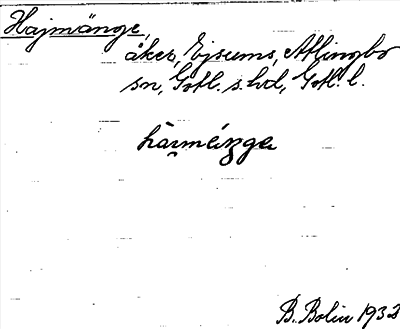 Hajmänge,
åker, Ejsums, Atlingbo
sn, Gotl. s. hd, Gotl. l.
B. Bolin 1932